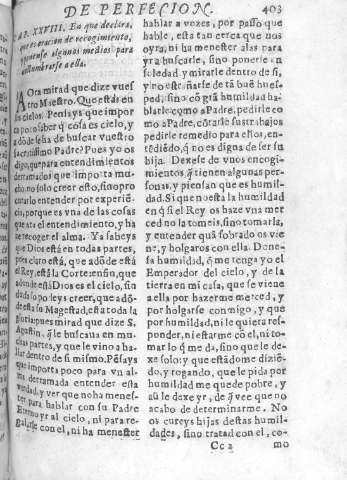 DE PERFECION. 403
CAP. XXVIII. En que declara,
que es oracion de recogimiento,
y ponense algunos medios para
acostumbrarse a ella.
AOra mirad que dize vues
tro Maestro. Que estás en
los cielos. Pensays que impor
ta poco saber q̃ cosa es cielo, y
adõde se ha de buscar vuestro
sacratissimo Padre? Pues yo os
digo, que para entendimientos
derramados que importa mu-
cho, no solo creer esto, sino pro
curarlo entender por experiẽ-
cia, porque es vna de las cosas
que ata el entendimiento, y ha
ze recoger el alma. Ya sabeys
que Dios està en todas partes,
pues claro està, que adõde està
el Rey, està la Corte: en fin, que
adonde està Dios es el cielo, sin
duda lo podeys creer, que adõ-
de està su Magestad, està toda la
gloria: pues mirad que dize S.
Agustin, q̃ le buscaua en mu-
chas partes, y que le vino a ha-
llar dentro de si mismo. Pẽsays
que importa poco para vn al-
ma derramada entender esta
verdad, y ver que no ha menes-
ter para hablar con su Padre
Eterno yr al cielo, ni para re-
galarse con el, ni ha menester
hablar a vozes, por passo que
hable, està tan cerca que nos
oyra, ni ha menester alas para
yr a buscarle, sino ponerse en
soledad y mirarle dentro de si,
y no estrañarse de tã buẽ hues-
ped, sino cõ grã humildad ha-
blarle como a Padre, pedirle co
mo a Padre, cõtarle sus trabajos
pedirle remedio para ellos, en-
tẽdiẽdo, q̃ no es digna de ser su
hija. Dexese de vnos encogi-
mientos, q̃ tienen algunas per-
sonas, y piensan que es humil-
dad. Si que no està la humildad
en q̃ si el Rey os haze vna mer
ced no la tomeis, sino tomarla,
y entender quã sobrado os vie
ne, y holgaros con ella. Dono-
sa humildad, q̃ me tenga yo el
Emperador del cielo, y de la
tierra en mi casa, que se viene
a ella por hazerme merced, y
por holgarse conmigo, y que
por humildad, ni le quiera res-
ponder, ni estarme cõ el, ni to-
mar lo q̃ me da, sino que le de-
xe solo: y que estãdome diziẽ-
do, y rogando, que le pida por
humildad me quede pobre, y
aũ le dexe yr, de q̃ vee que no
acabo de determinarme. No
os cureys hijas destas humil-
dades, sino tratad con el, co-
Cc 2 mo